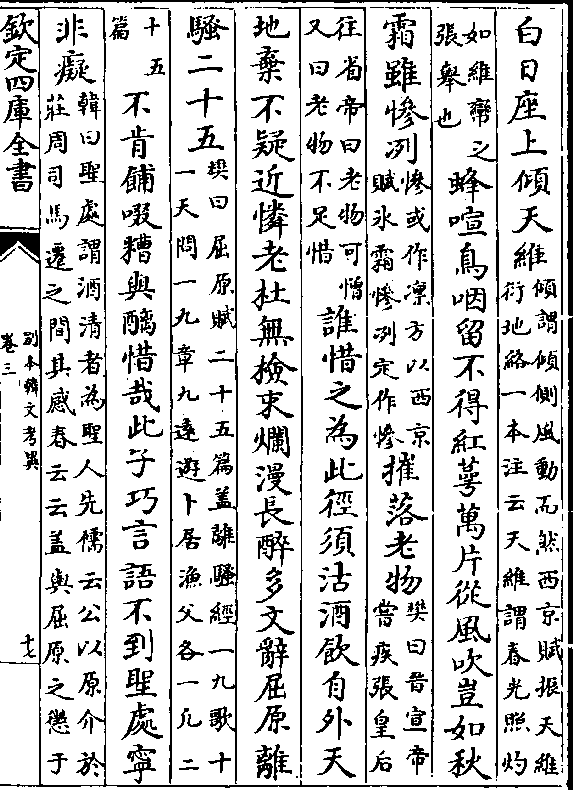 白日座上傾天維
傾謂傾側風動而然西京賦振天維
衍地絡一本注云天維謂春光照灼
如維之
張舉也
蜂喧鳥咽留不得紅萼萬片從風吹豈如秋
霜雖慘冽
慘或作凛方以西京
賦氷霜慘冽定作慘
摧落老物
樊曰晉宣帝
嘗疾張皇后
往省帝曰老物可憎
又曰老物不足惜
誰惜之為此徑須沽酒飲自外天
地棄不疑近憐老杜無檢束爛漫長醉多文辭屈原離
騷二十五
樊曰屈原賦二十五篇蓋離騷經一九歌十
一天問一九章九遠遊卜居漁父各一凡二
十五
篇
不肯餔啜糟與醨惜哉此子巧言語不到聖處寧
非癡
韓曰聖處謂酒清者為聖人先儒云公以原介於
莊周司馬遷之間其感春云云蓋與屈原之懲于
欽定四庫全書
別本韓文考異
卷三
十七